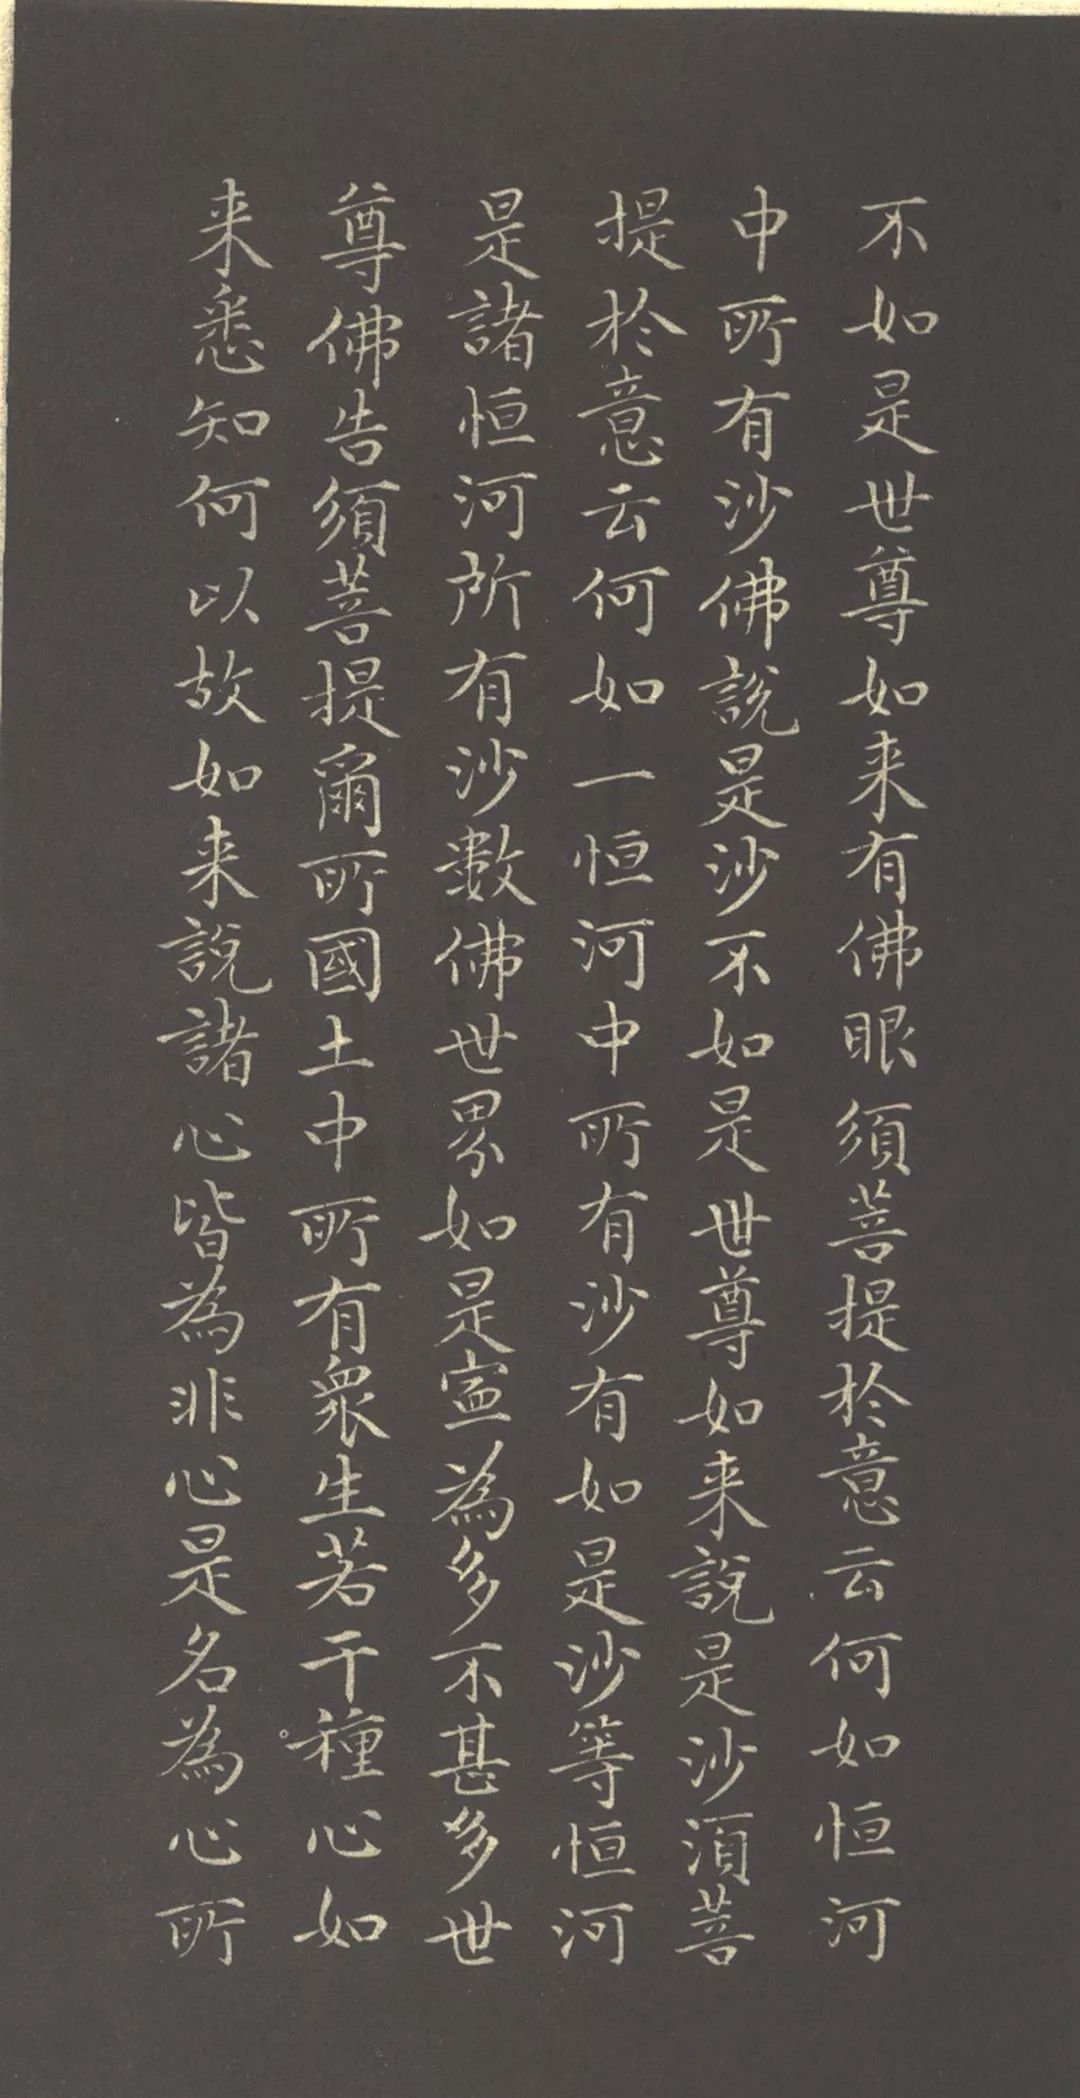 不如是世尊如来有佛眼須菩提於意云何如恒河
中所有沙佛說是沙不如是世尊如来說是沙湏菩
提於意云何如一恒河中所有沙有如是沙等恒河
是諸恒河所有沙數佛世界如是寧為多不甚多世
尊佛告須菩提爾所國土中所有衆生若干種心如
来悉知何以故如来說諸心皆為非心是名為心所